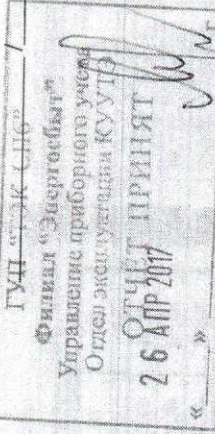 ГУП "ТЭК СПб"
Филиал "Энергосбыт"
Управление приборного учета
Отдел эксплуатации КУУТЭ
ОТЧЕТ ПРИНЯТ
2 6 АПР 2017
« »